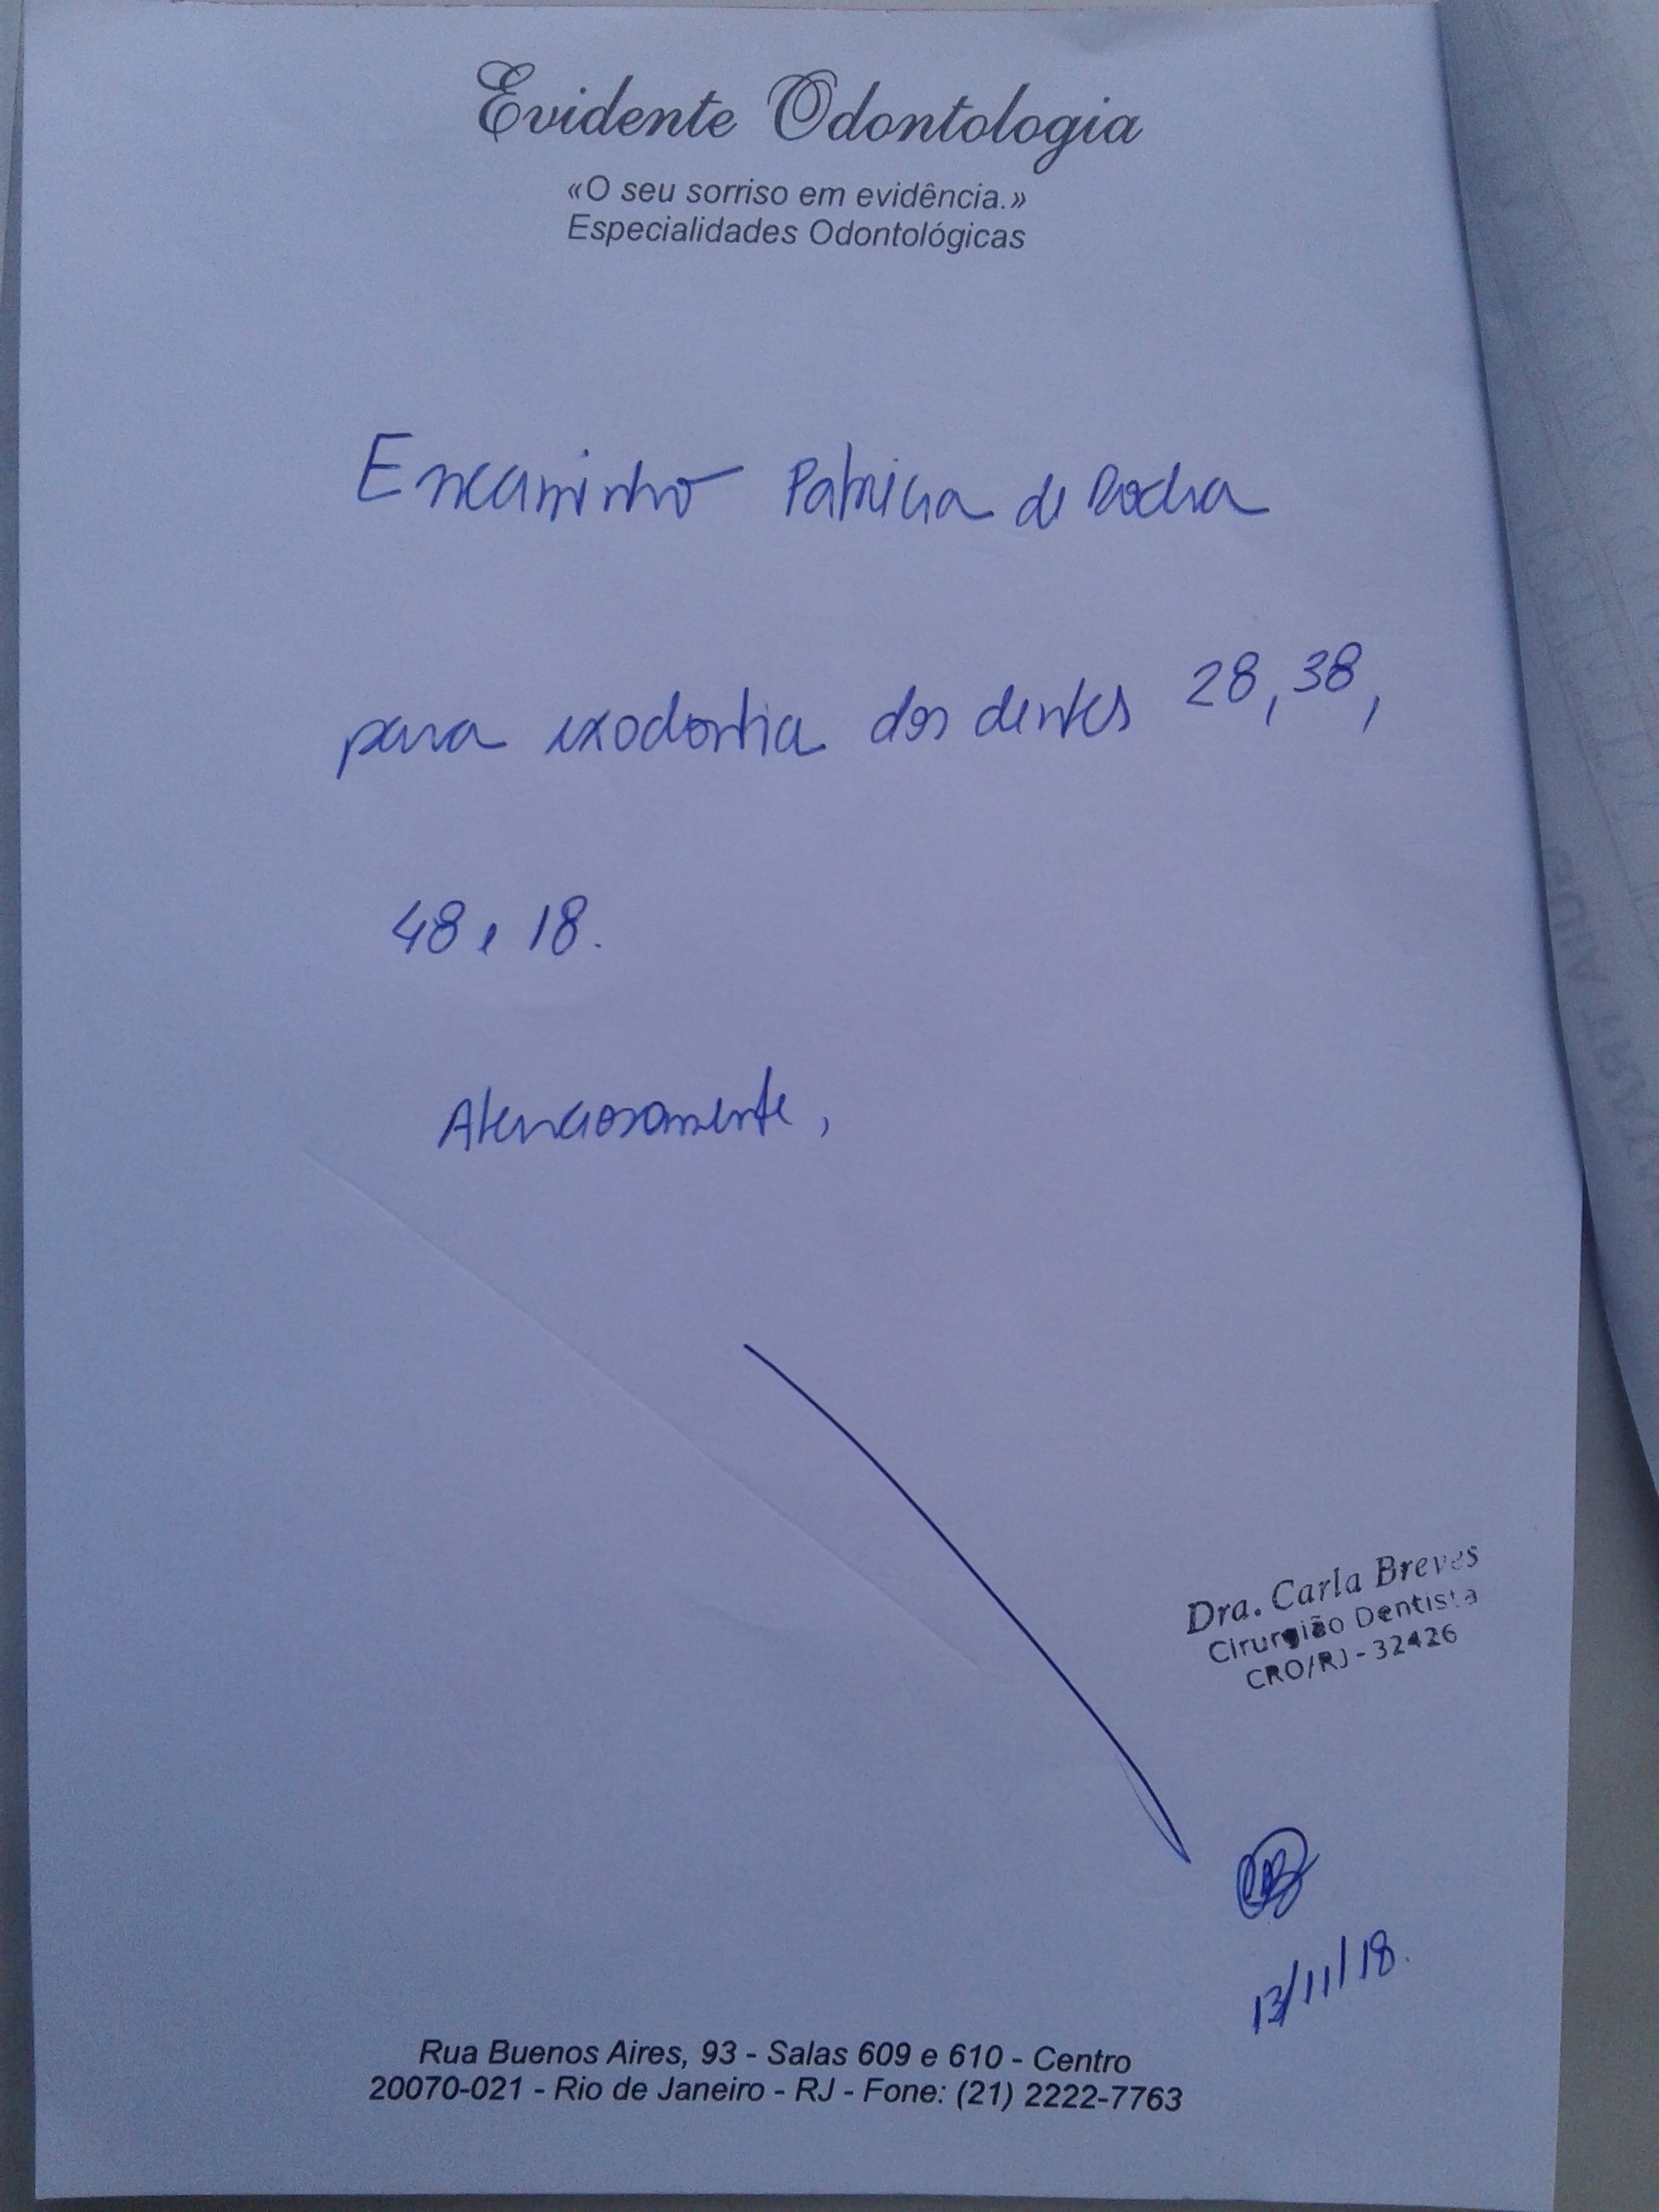 Evidente Odontologia
«O seu sorriso em evidência.»
Especialidades Odontológicas
Encaminho Patricia de Rocha
para exodontia dos dentes 28, 38,
48 e 18.
Atenciosamente,
Dra. Carla Breves
Cirurgião Dentista
CRO/RJ - 32426
13/11/18.
Rua Buenos Aires, 93 - Salas 609 e 610 - Centro
20070-021 - Rio de Janeiro - RJ - Fone: (21) 2222-7763